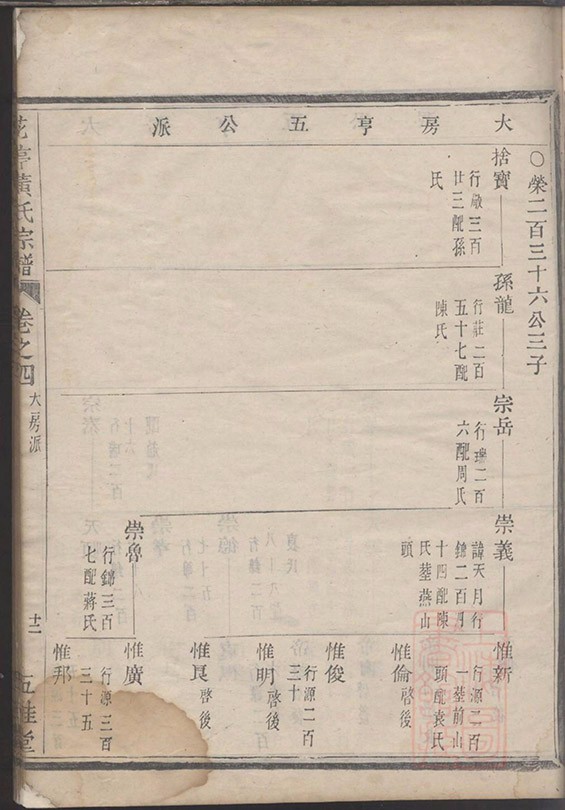 大房亨五公派
○榮二百三十六公三子
捨寶
行嚴三百
廿三配孫
氏
孫龍
行莊二百
五十七配
陳氏
宗岳
行璣二百
六配周氏
崇義
諱天月行
錦二百
十四配陳
氏塟燕山
頭
崇魯
行錦三百
七配蔣氏
惟新
行源二百
一塟前山
頭配袁氏
惟倫
啓後
惟俊
行源二百
三十
惟明
啓後
惟良
啓後
惟廣
行源三百
三十五
惟邦
花亭黃氏宗譜
卷之四
大房派
五桂堂